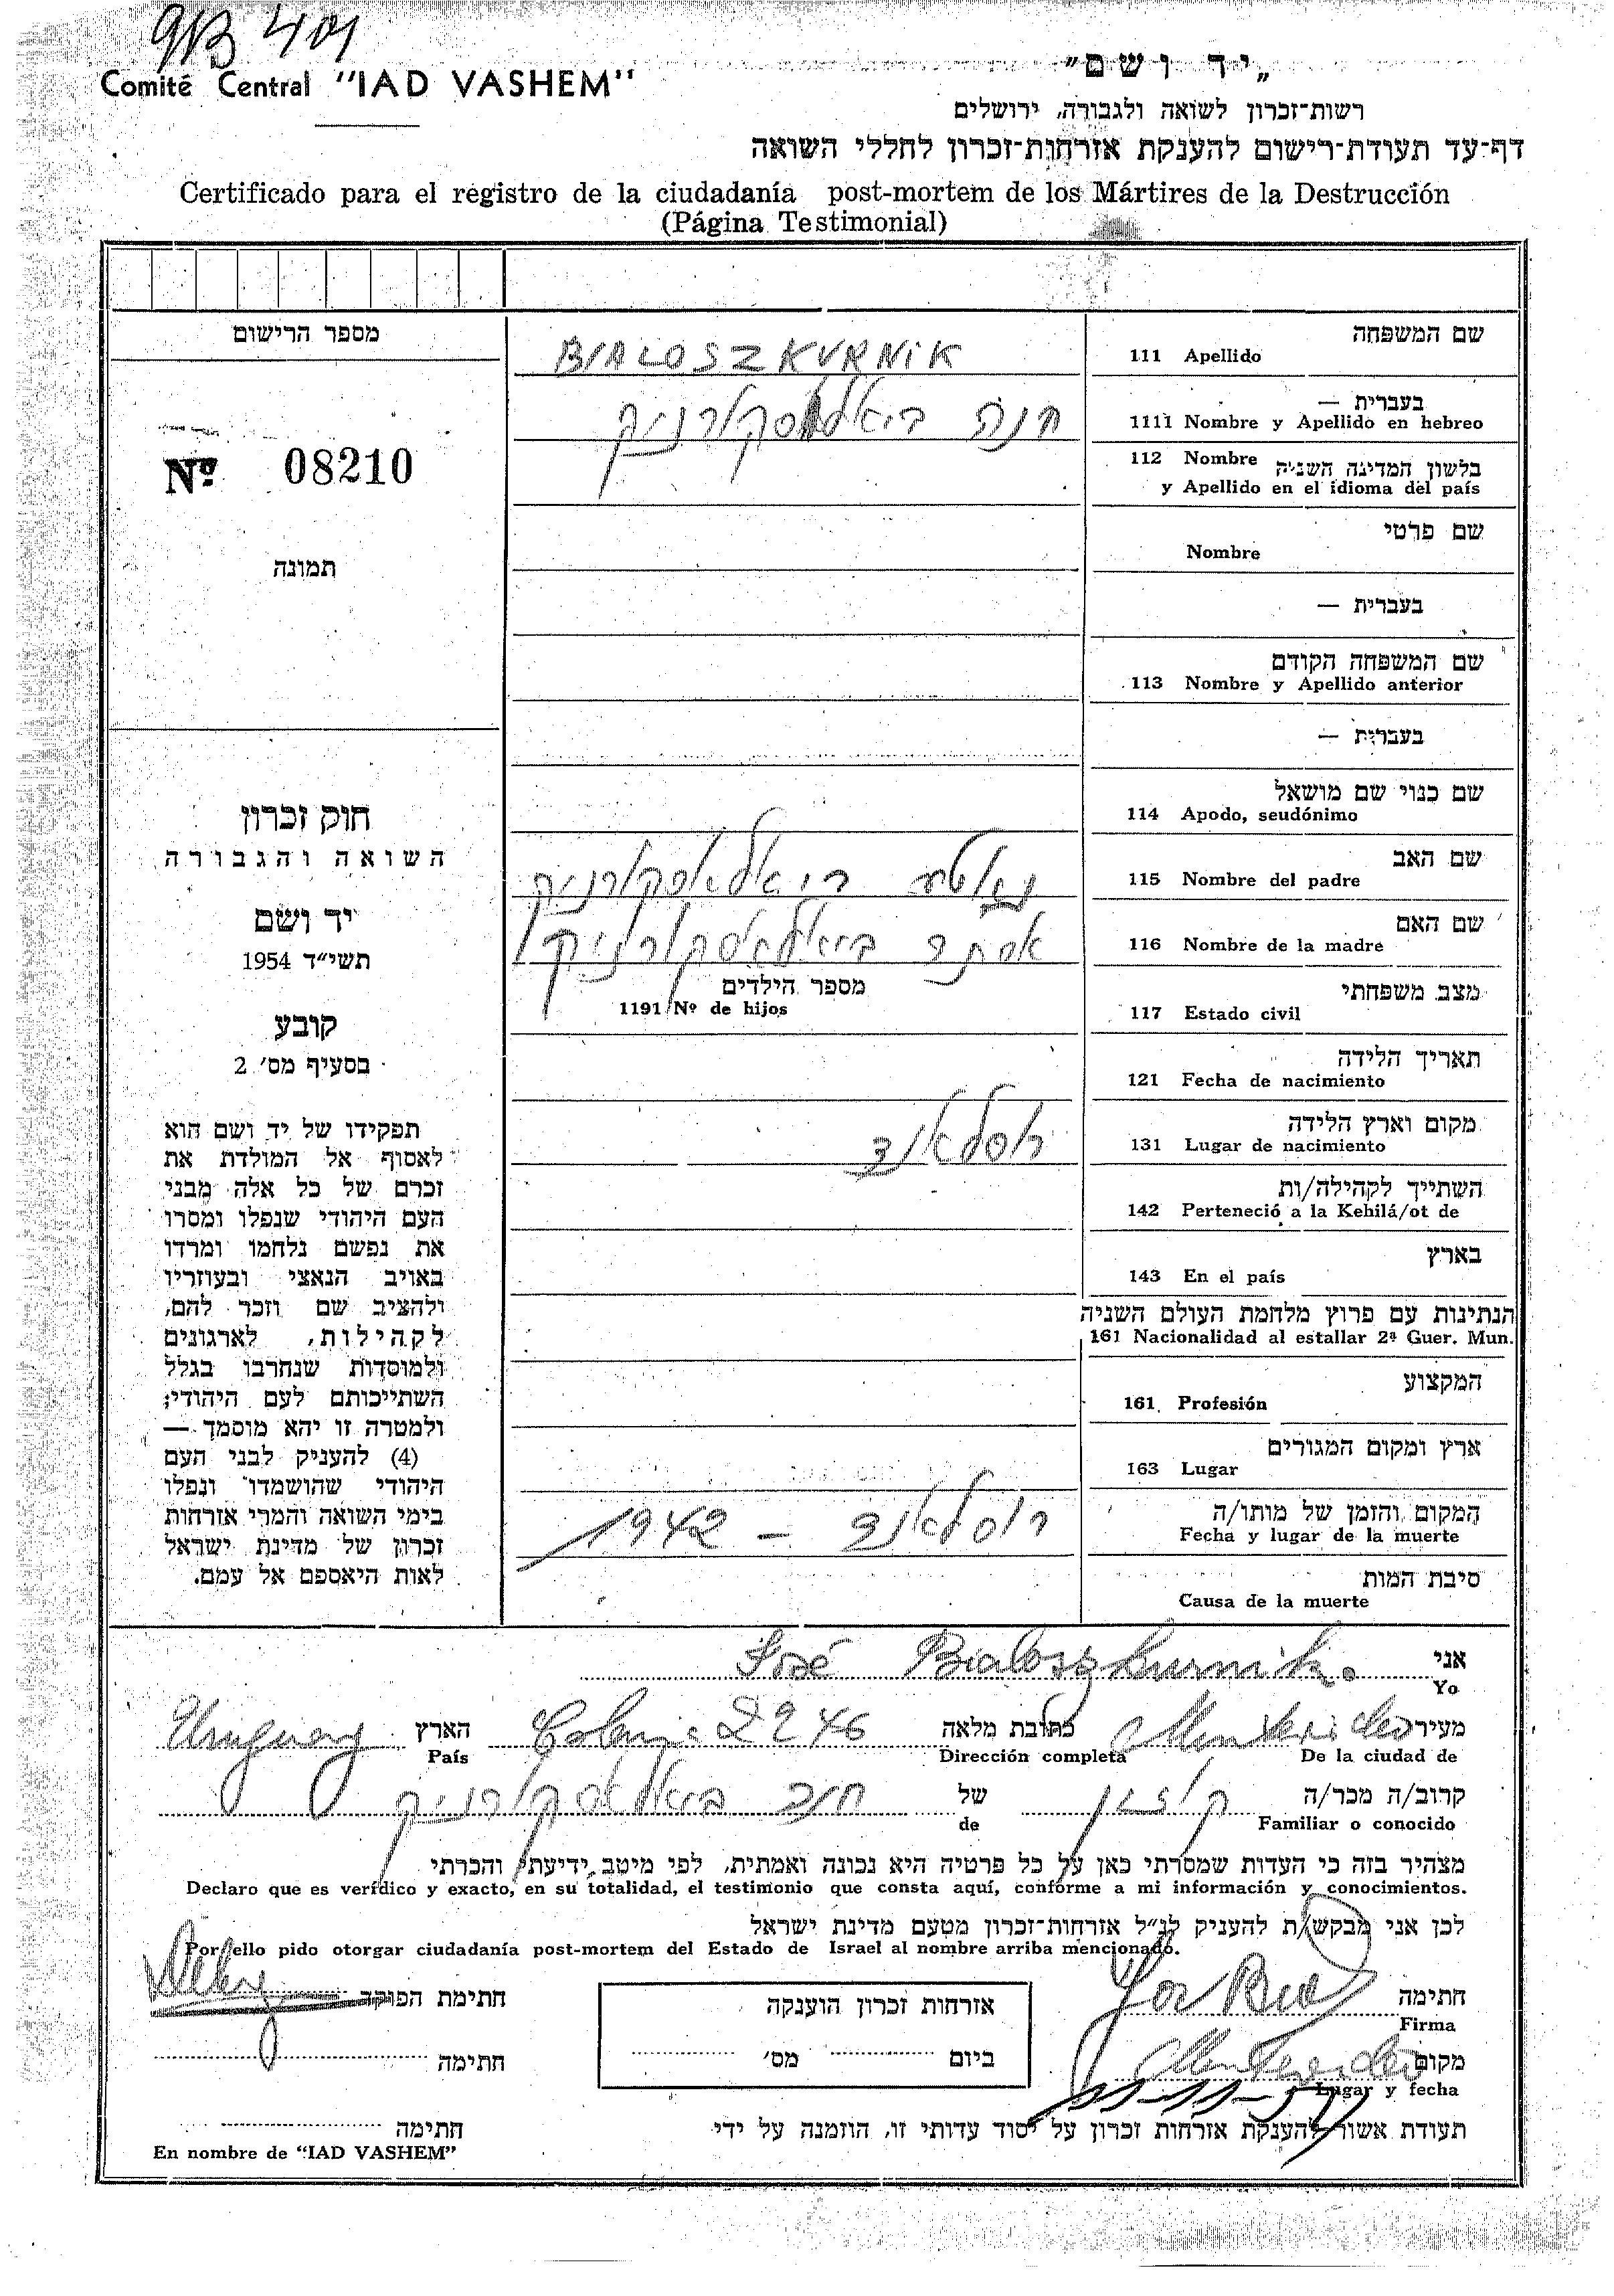 9/B 401
Comité Central "IAD VASHEM"
„יד ושם"
רשות־זכרון לשואה ולגבורה, ירושלים
דף־עד תעודת־רישום להענקת אזרחות־זכרון לחללי השואה
Certificado para el registro de la ciudadanía post-mortem de los Mártires de la Destrucción
(Página Testimonial)
מספר הרישום
Nº 08210
תמונה
חוק זכרון
השואה והגבורה
יד ושם
תשי״ד 1954
קובע
בסעיף מס׳ 2
תפקידו של יד ושם הוא
לאסוף אל המולדת את
זכרם של כל אלה מבני
העם היהודי שנפלו ומסרו
את נפשם נלחמו ומרדו
באויב הנאצי ובעוזריו
ולהציב שם וזכר להם,
לקהילות, לארגונים
ולמוסדות שנחרבו בגלל
השתייכותם לעם היהודי;
ולמטרה זו יהא מוסמך —
(4) להעניק לבני העם
היהודי שהושמדו ונפלו
בימי השואה והמרי אזרחות
זכרון של מדינת ישראל
לאות היאספם אל עמם.
שם המשפחה
111 Apellido
BIALOSZKURNIK
בעברית —
1111 Nombre y Apellido en hebreo
חנה ביאלאסקורניק
112 Nombre בלשון המדינה השניה
y Apellido en el idioma del país
שם פרטי
Nombre
בעברית —
שם המשפחה הקודם
113 Nombre y Apellido anterior
בעברית —
שם כנוי שם מושאל
114 Apodo, seudónimo
שם האב
115 Nombre del padre
ביאלאסקורניק
שם האם
116 Nombre de la madre
אסתר ביאלאסקורניק
מספר הילדים
1191 Nº de hijos
מצב משפחתי
117 Estado civil
תאריך הלידה
121 Fecha de nacimiento
מקום וארץ הלידה
131 Lugar de nacimiento
רוסלאנד
השתייך לקהילה/ות
142 Perteneció a la Kehilá/ot de
בארץ
143 En el país
הנתינות עם פרוץ מלחמת העולם השניה
161 Nacionalidad al estallar 2ª Guer. Mun.
המקצוע
161 Profesión
ארץ ומקום המגורים
163 Lugar
המקום והזמן של מותו/ה
Fecha y lugar de la muerte
רוסלאנד – 1942
סיבת המות
Causa de la muerte
אני José Bialoszkurnik.
Yo
מעיר Montevideo כתובת מלאה Colonia 2246 הארץ Uruguay
De la ciudad de Dirección completa País
קרוב/ה מכר/ה קוזין של חנה ביאלאסקורניק
Familiar o conocido de
מצהיר בזה כי העדות שמסרתי כאן על כל פרטיה היא נכונה ואמתית, לפי מיטב ידיעתי והכרתי
Declaro que es verídico y exacto, en su totalidad, el testimonio que consta aquí, conforme a mi información y conocimientos.
לכן אני מבקש/ת להעניק לנ״ל אזרחות־זכרון מטעם מדינת ישראל
Por ello pido otorgar ciudadanía post-mortem del Estado de Israel al nombre arriba mencionado.
חתימה
Firma
אזרחות זכרון הוענקה
ביום מס׳
חתימת הפוקד
חתימה
מקום Montevideo
Lugar y fecha
תעודת אשור להענקת אזרחות זכרון על יסוד עדותי זו, הוזמנה על ידי
חתימה
En nombre de "IAD VASHEM"